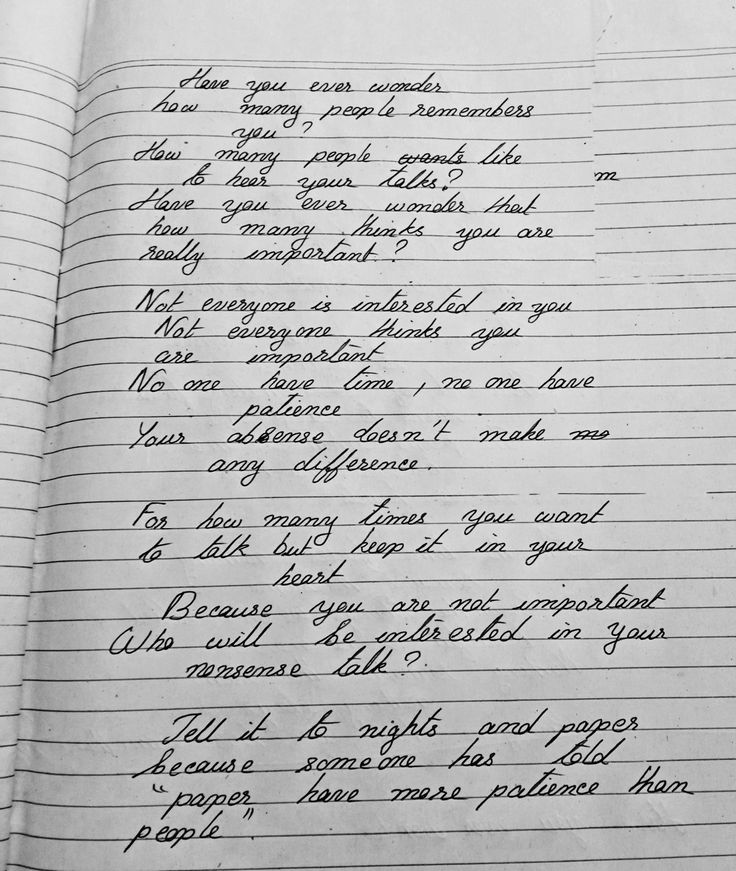 Have you ever wonder
how many people remembers
you?
How many people wants like
to hear your talks?
m
Have you ever wonder that
how many thinks you are
really important?
Not everyone is interested in you
Not everyone thinks you
are important
No one have time, no one have
patience
Your absense doesn't make me
any difference.
For how many times you want
to talk but keep it in your
heart
Because you are not important
Who will be interested in your
nonsense talk?
Tell it to nights and paper
because someone has told
"paper have more patience than
people".